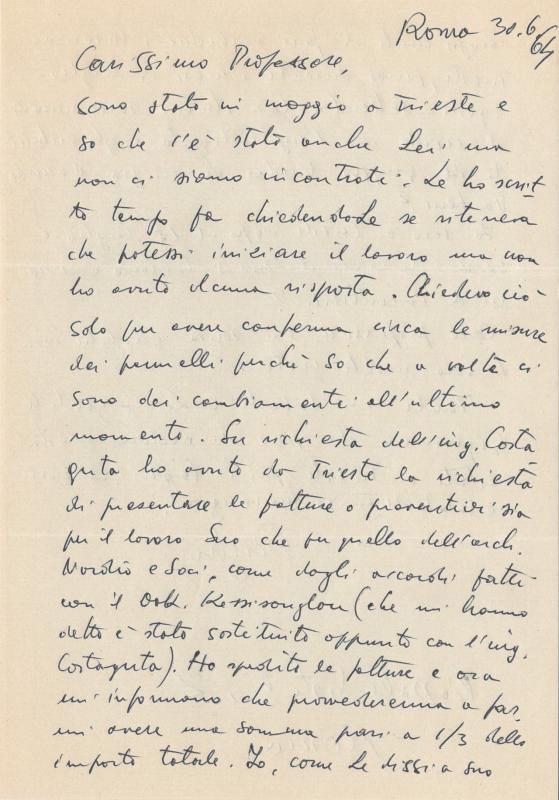 Roma 30.6.64
Carissimo Professore,
sono stato in maggio a Trieste e
so che c'è stato anche Lei ma
non ci siamo incontrati. Le ho scrit-
to tempo fa chiedendoLe se riteneva
che potessi iniziare il lavoro ma non
ho avuto alcuna risposta. Chiedevo ciò
solo per avere conferma circa le misure
dei pannelli perchè so che a volte ci
sono dei cambiamenti all'ultimo
momento. Su richiesta dell'ing. Costa
guta ho avuto da Trieste la richiesta
di presentare le fatture o preventivi sia
per il lavoro Suo che per quello dell'arch.
Nordio e Soci, come dagli accordi fatti
con il Dott. Kossisouglou (che mi hanno
detto è stato sostituito appunto con l'ing.
Costaguta). Ho spedito le fatture e ora
m'informano che provvederanno a far
mi avere una somma pari a 1/3 dello
importo totale. Io, come Le dissi a suo